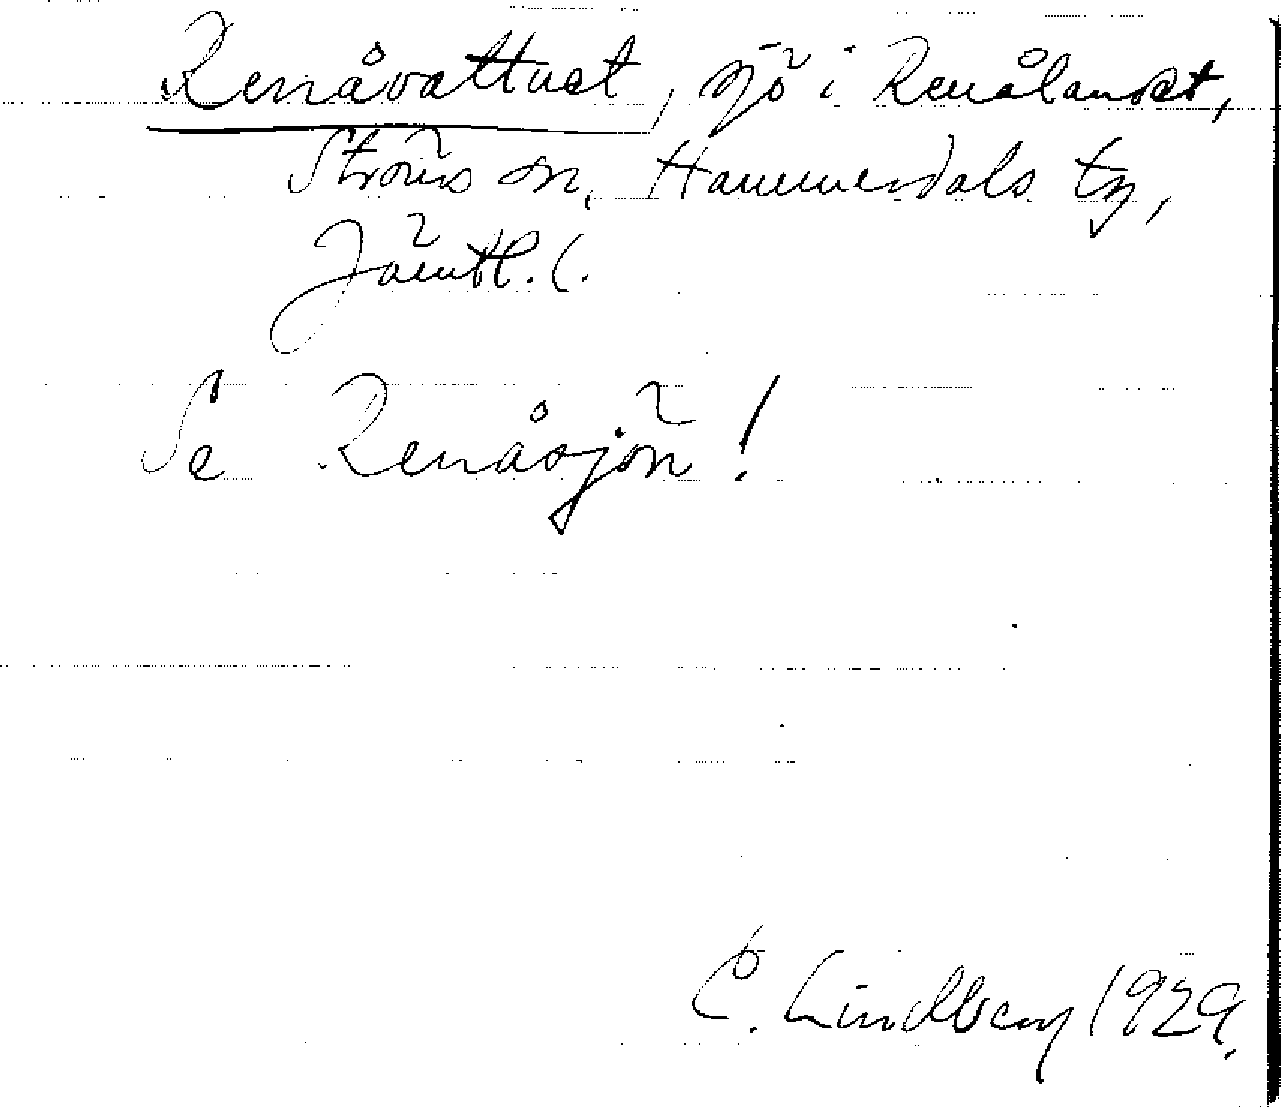 Renåvattnet, sjö i Renålandet,
Ströms sn, Hammerdals tg,
Jämtl. l.
Se Renåsjön!
C. Lindberg 1929.